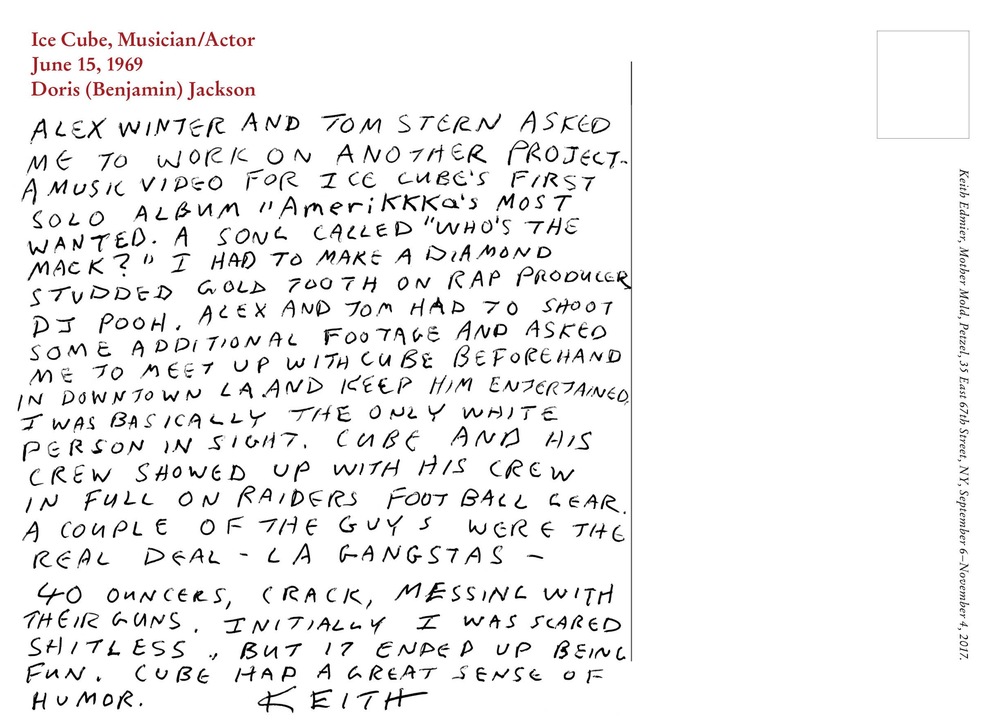 Ice Cube, Musician/Actor
June 15, 1969
Doris (Benjamin) Jackson
ALEX WINTER AND TOM STERN ASKED
ME TO WORK ON ANOTHER PROJECT.
A MUSIC VIDEO FOR ICE CUBE'S FIRST
SOLO ALBUM "AmeriKKKa's MOST
WANTED. A SONG CALLED "WHO'S THE
MACK?" I HAD TO MAKE A DIAMOND
STUDDED GOLD TOOTH ON RAP PRODUCER
DJ POOH. ALEX AND TOM HAD TO SHOOT
SOME ADDITIONAL FOOTAGE AND ASKED
ME TO MEET UP WITH CUBE BEFOREHAND
IN DOWNTOWN LA AND KEEP HIM ENTERTAINED.
I WAS BASICALLY THE ONLY WHITE
PERSON IN SIGHT. CUBE AND HIS
CREW SHOWED UP WITH HIS CREW
IN FULL ON RAIDERS FOOTBALL GEAR.
A COUPLE OF THE GUYS WERE THE
REAL DEAL - LA GANGSTAS -
40 OUNCERS, CRACK, MESSING WITH
THEIR GUNS. INITIALLY I WAS SCARED
SHITLESS., BUT IT ENDED UP BEING
FUN. CUBE HAD A GREAT SENSE OF
HUMOR. KEITH
Keith Edmier, Mother Mold, Petzel, 35 East 67th Street, NY, September 6–November 4, 2017.